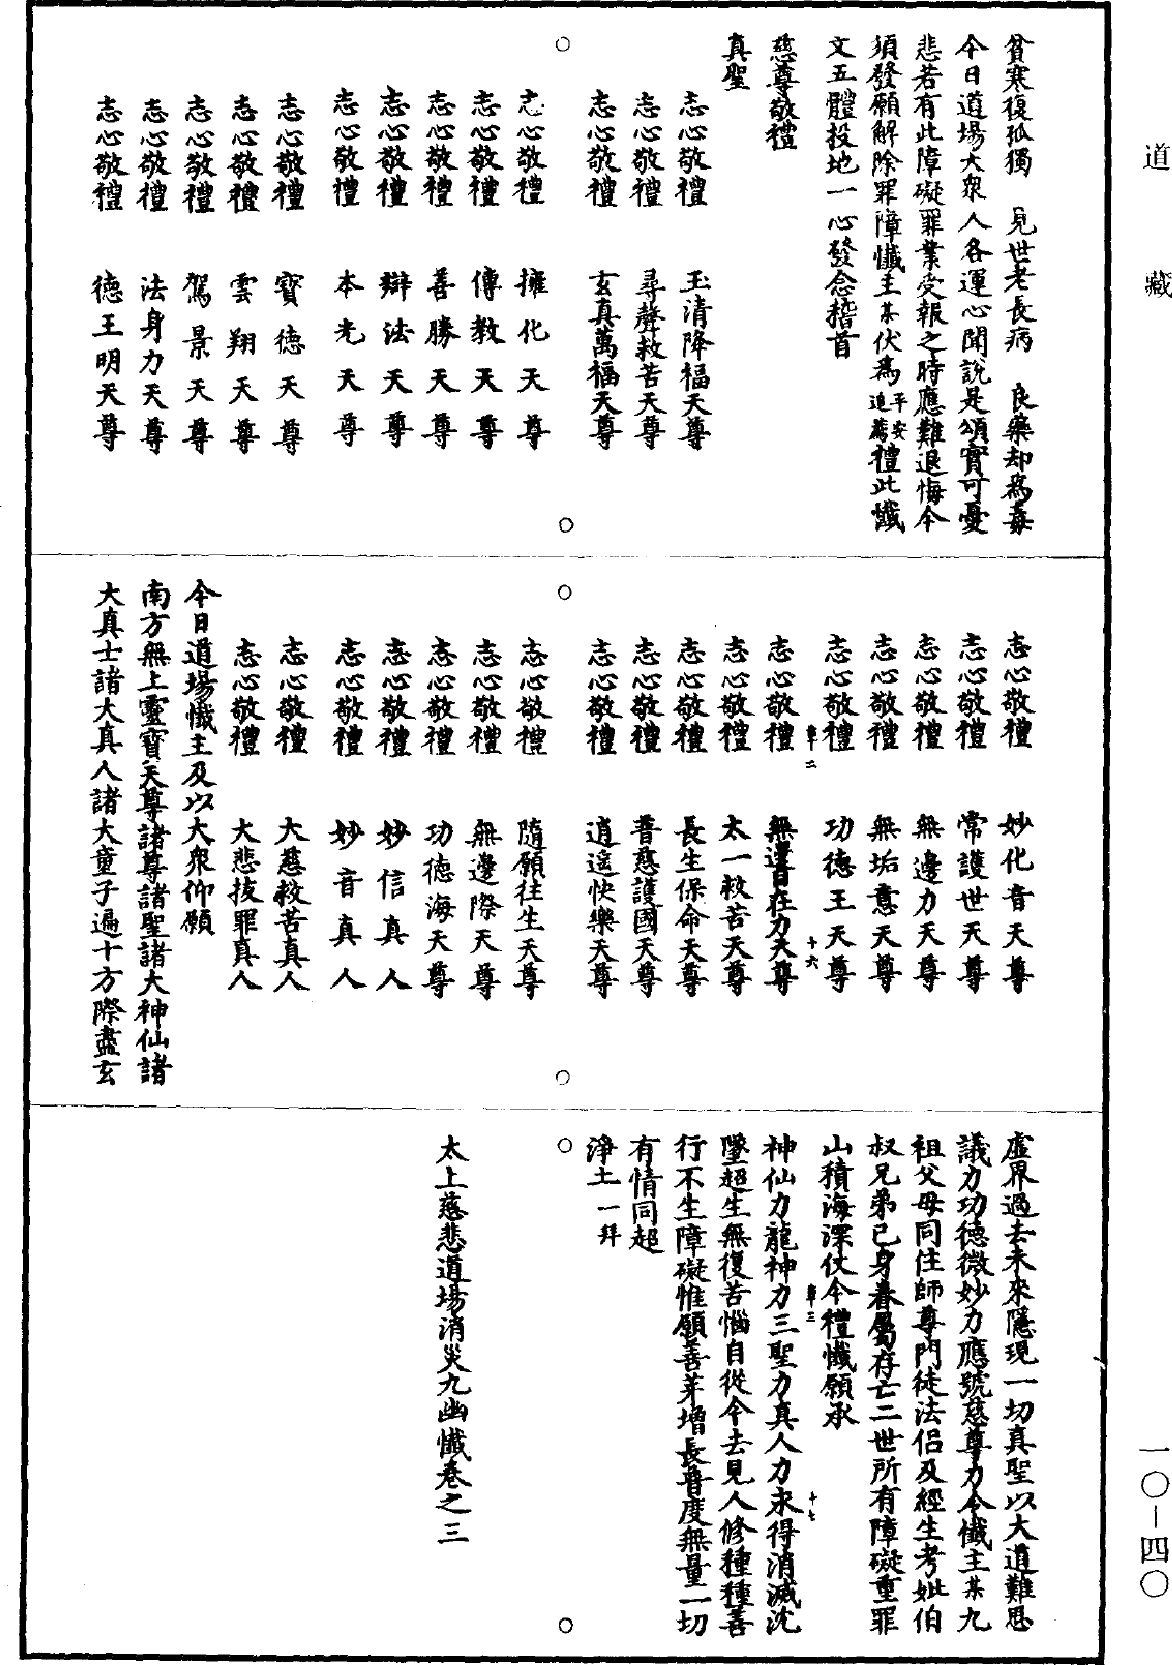 道藏
貧寒復孤獨　見世老長病　良藥却爲毒
今日道場大衆人各運心聞說是頌實可憂
悲若有此障礙罪業受報之時應難退悔今
須發願解除罪障懺主某伏爲平安追薦禮此懺
文五體投地一心發念稽首
慈尊敬禮
真聖
志心敬禮　玉清降福天尊
志心敬禮　尋聲救苦天尊
志心敬禮　玄真萬福天尊
志心敬禮　擁化天尊
志心敬禮　傳教天尊
志心敬禮　善勝天尊
志心敬禮　辯法天尊
志心敬禮　本光天尊
志心敬禮　寶德天尊
志心敬禮　雲翔天尊
志心敬禮　駕景天尊
志心敬禮　法身力天尊
志心敬禮　德王明天尊
志心敬禮　妙化音天尊
志心敬禮　常護世天尊
志心敬禮　無邊力天尊
志心敬禮　無垢意天尊
志心敬禮　功德王天尊
章二　十六
志心敬禮　無邊自在力天尊
志心敬禮　太一救苦天尊
志心敬禮　長生保命天尊
志心敬禮　普慈護國天尊
志心敬禮　逍遙快樂天尊
志心敬禮　隨願往生天尊
志心敬禮　無邊際天尊
志心敬禮　功德海天尊
志心敬禮　妙信真人
志心敬禮　妙音真人
志心敬禮　大慈救苦真人
志心敬禮　大悲拔罪真人
今日道場懺主及以大衆仰願
南方無上靈寶天尊諸尊諸聖諸大神仙諸
大真士諸大真人諸大童子遍十方際盡玄
虛界過去未來隱現一切真聖以大道難思
議力功德微妙力應號慈尊力令懺主某九
祖父母同住師尊門徒法侶及經生考妣伯
叔兄弟己身眷屬存亡二世所有障礙重罪
山積海深仗今禮懺願承
章三　十七
神仙力龍神力三聖力真人力求得消滅沈
墜超生無復苦惱自從今去見人修種種善
行不生障礙惟願善芽增長普度無量一切
有情同超
淨土一拜
太上慈悲道場消災九幽懺卷之三
一〇—四〇